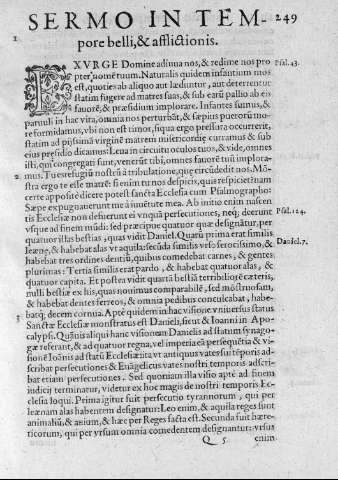 SERMO IN TEM- 249
pore belli, & afflictionis.
EXVRGE Domine adiuua nos, & redime nos pro Psal. 43.
pter nomē tuum. Naturalis quidem infantium mos
est, quoties ab aliquo aut læduntur, aut deterrentur
statim fugere ad matres suas, & sub earū pallio ab eis
fauorē, & præsidium implorare. Infantes sumus, &
paruuli in hac vita, omnia nos perturbāt, & sæpius puerorū mo
re formidamus, vbi non est timor, siqua ergo pressura occurrerit,
statim ad piissimā virginē matrem misericordiæ curramus & sub
eius præsidio dicamus: Leua in circuitu oculos tuos, & vide, omnes
isti, qui congregati sunt, venerūt tibi, omnes fauorē tuū implora-
mus. Tu es refugiū nostrū à tribulatione, quę circūdedit nos. Mō-
2. stra ergo te esse matrē: si enim tu nos despicis, quis respiciet? nam
certe apposite dicere potest sancta Ecclesia cum Psalmographo:
Sæpe expugnauerunt me à iuuētute mea. Ab initio enim nascen
tis Ecclesiæ non defuerunt ei vnquā persecutiones, neq; deerunt Psal. 124.
vsque ad finem mūdi: sed præcipue quatuor quæ designātur, per
quatuor illas bestias, quas vidit Daniel. Quarū prima erat similis Daniel. 7.
leænę, & habebat alas vt aquilæ: secūda similis vrso ferocissimo, &
habebat tres ordines dentiū, quibus comedebat carnes, & gentes
plurimas: Tertia similis erat pardo, & habebat quatuor alas, &
quatuor capita. Et postea vidit quartā bestiā terribiliorē cæteris,
nulli bestiæ ex his, quas nouimus comparabilē, sed mōstruosam,
& habebat dentes ferreos, & omnia pedibus conculcabat, habe-
batq; decem cornua. Aptè quidem in hac visione vniuersus status
Sanctæ Ecclesiæ monstratus est Danieli, sicut & Ioanni in Apo-
calypsi. Quāuis aliqui hanc visionem Danielis ad statum synago-
gæ referant, & ad quatuor regna, vel imperia eā persequētia & vi-
sionē Ioānis ad statū Ecclesiæ: ita vt antiquus vates sui tēporis ad-
scribat persecutiones & Euāgelicus vates nostri temporis adscri-
bat etiam persecutiones. Sed quoniam illa visio aptè ad finem
iudicij terminatur, videtur ex hoc magis de nostri temporis Ec-
clesia loqui. Prima igitur fuit persecutio tyrannorum, qui per
leænam alas habentem designatur: Leo enim, & aquila reges sunt
animaliū, & auium, & hæc per Reges facta est. Secunda fuit hære-
ticorum, qui per vrsum omnia comedentem designantur: vrsus
Q 5 enim